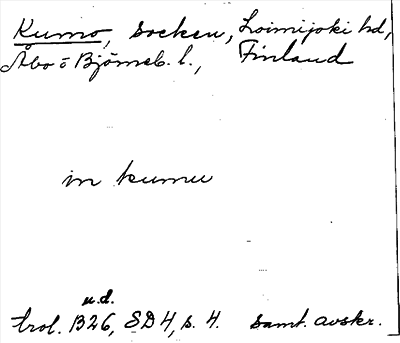 Kumo, socken, Loimijoki hd,
Åbo o Björneb. l., Finland
in kumu
u.d.
trol. B26, SD4, s. 4. samt. avskr.